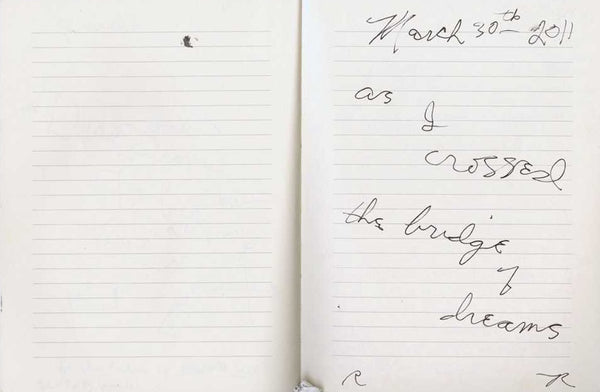 March 30th 2011
as
I
crossed
the bridge
of
dreams
R R